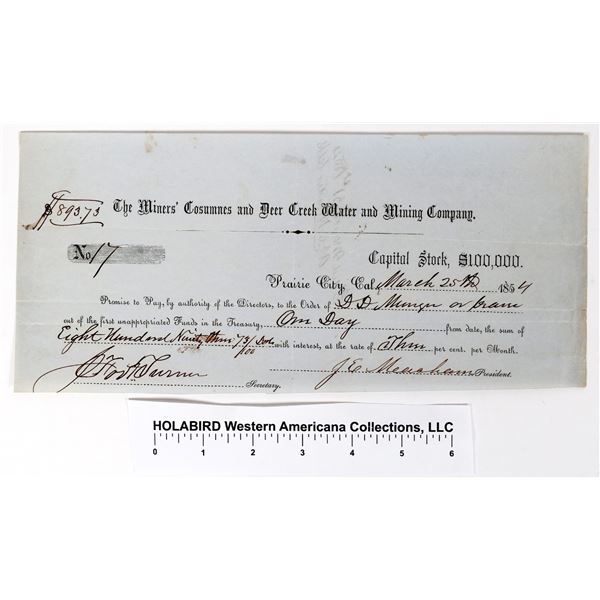 $893.73
The Miners' Cosumnes and Deer Creek Water and Mining Company.
No 17
Capital Stock, $100,000.
Prairie City, Cal. March 25th 1854
Promise to Pay, by authority of the Directors, to the Order of D. D. Munger or
out of the first unappropriated Funds in the Treasury, One Day from date, the sum of
Eight Hundred Ninety three 73/100 Dol with interest, at the rate of Three per cent. per Month.
Turner
Secretary.
J. E. President.
HOLABIRD Western Americana Collections, LLC
0 1 2 3 4 5 6